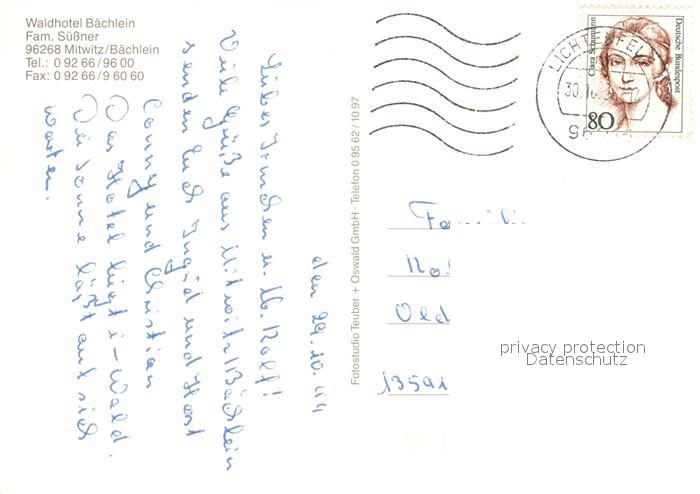 Waldhotel Bächlein
Fam. Süßner
96268 Mitwitz/Bächlein
Tel.: 0 92 66/96 00
Fax: 0 92 66/9 60 60
den 29.10.
Rolf!
Viele Grüße aus Mitwitz/Bächlein
senden Euch Ingrid und Horst
Conny und Christian
Das Hotel liegt i. Wald.
Die Sonne läßt auf sich
warten.
Fotostudio Teuber + Oswald GmbH · Telefon 0 95 62 / 10 97
Deutsche Bundespost
Clara Schumann
80
LICHTENFELS
30.10.
96
Old
1359
privacy protection
Datenschutz